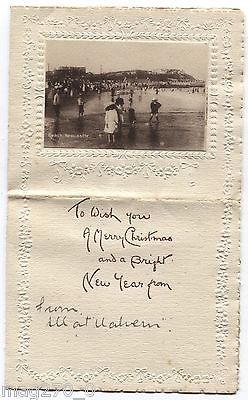 Beach, Newcastle
To Wish you
A Merry Christmas
and a Bright
New Year from
From
all at Malvern
mag270_0